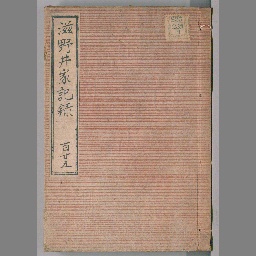 滋野井家記録
百廿九